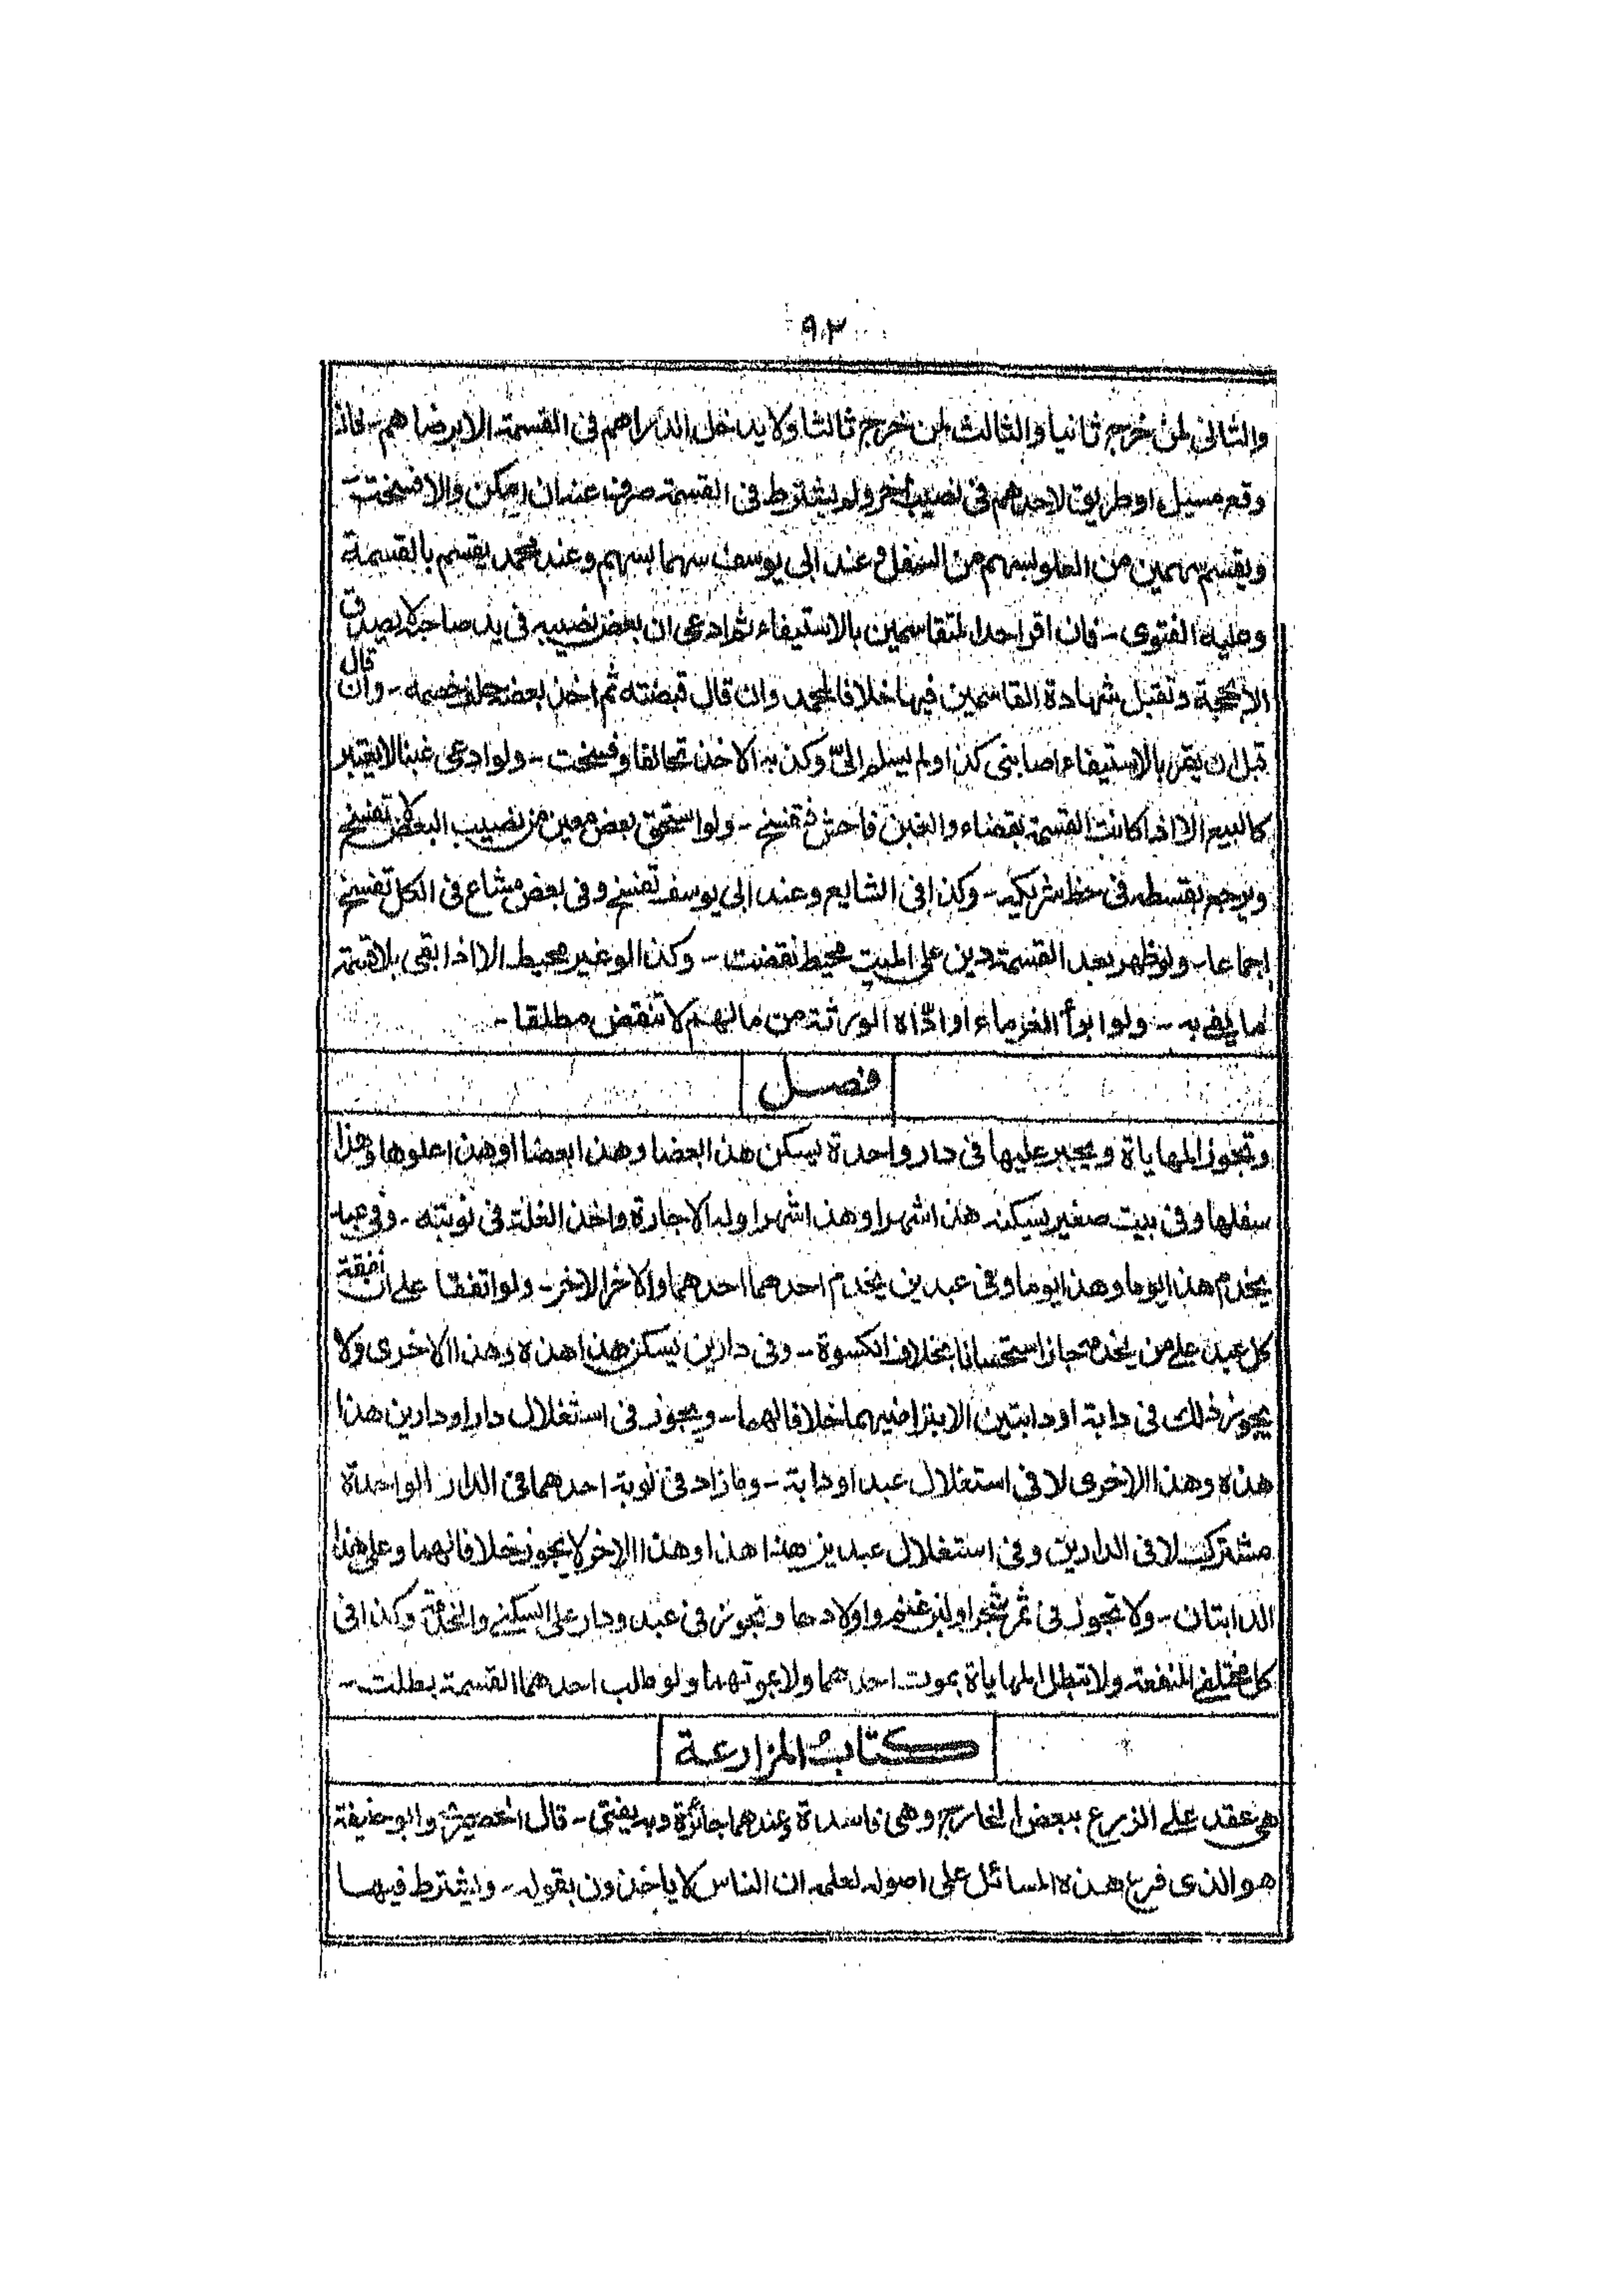 ٩٢
والثانى لمن خرج ثانيا والثالث لمن خرج ثالثا ولا يدخل الدراهم فى القسمة الا برضاهم - فان
وقع مسيل او طريق لاحدهم فى نصيب اخر ولم يشترط فى القسمة صرف عنه ان امكن والا فسخت -
ويقسم سهمين من العلو بسهم من السفل و عند ابى يوسف سهما بسهم وعند محمد يقسم بالقسيمة
وعليه الفتوى - فان اقر احد المتقاسمين بالاستيفاء ثم ادعى ان بعض نصيبه فى يد صاحبه لا يصدق
الا بحجة وتقبل شهادة القاسمين فيها خلافا لمحمد وان قال قبضته ثم اخذ بعضه حلف خصمه - وان قال
قبل ان يقر بالاستيفاء اصابنى كذا ولم يسلم الىّ وكذبه الاخذ تحالفا وفسخت - ولو ادعى غبنا لا يعتبر
كالبيع الا اذا كانت القسمة بقضاء والغبن فاحش فتفسخ - ولو استحق بعض معين من نصيب البعض لا تفسخ
ويرجع بقسطه فى حظ شريكه - وكذا فى الشايع وعند ابى يوسف تفسخ وفى بعض مشاع فى الكل تفسخ
اجماعا - ولو ظهر بعد القسمة دين على الميت محيط نقضت - وكذا لو غير محيط الا اذا بقى بلا قسمة
ما يفى به - ولو ابرأ الغرماء او ادّاه الورثة من مالهم لا تنقض مطلقا -
فصل
وتجوز المهاياة ويجبر عليها فى دار واحدة يسكن هذا بعضا وهذا بعضا او هذا علوها وهذا
سفلها وفى بيت صغير يسكنه هذا شهرا وهذا شهرا وله الاجارة واخذ الغلة فى نوبته - وفى عبد
يخدم هذا يوما وهذا يوما وفى عبدين يخدم احدهما احدهما والاخر الاخر - ولو اتفقا على ان نفقة
كل عبد على من يخدمه جاز استحسانا بخلاف الكسوة - وفى دارين يسكن هذا هذه وهذا الاخرى ولا
يجوز ذلك فى دابة او دابتين الا بتراضيهما خلافا لهما - ويجوز فى استغلال دار او دارين هذا
هذه وهذا الاخرى لا فى استغلال عبد او دابة - وما زاد فى نوبة احدهما فى الدار الواحدة
مشترك لا فى الدارين وفى استغلال عبدين هذا هذا وهذا الاخر لا يجوز خلافا لهما وعلى هذا
الدابتان - ولا تجوز فى ثمر شجر او لبن غنم واولادها وتجوز فى عبد ودار على السكنى والخدمة وكذا فى
كل مختلفى المنفعة ولا تبطل المهاياة بموت احدهما ولا بموتهما ولو طلب احدهما القسمة بطلت -
كتاب المزارعة
هى عقد على الزرع ببعض الخارج وهى فاسدة وعندهما جائزة وبه يفتى - قال الحصيرى وابو حنيفة
هو الذى فرع هذه المسائل على اصوله لعلمه ان الناس لا ياخذون بقوله - ويشترط فيها